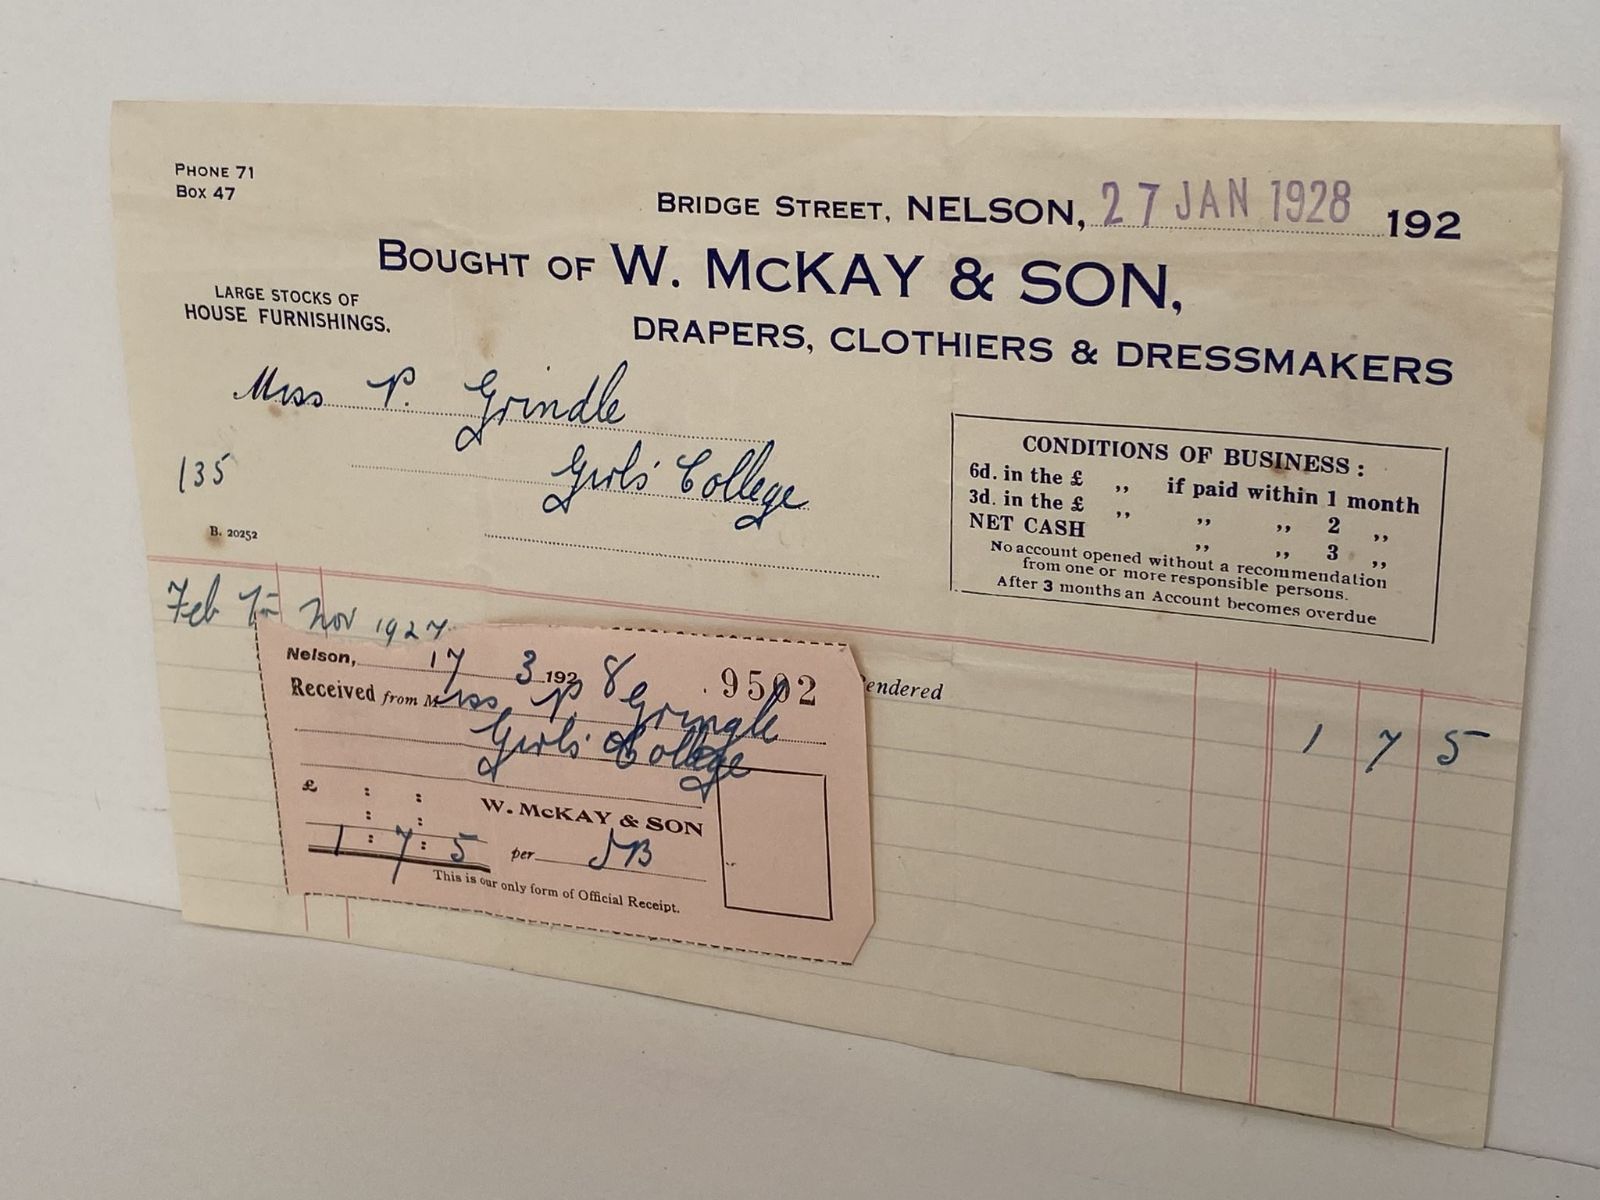 PHONE 71
BOX 47
BRIDGE STREET, NELSON, 27 JAN 1928 192
BOUGHT OF W. McKAY & SON,
LARGE STOCKS OF
HOUSE FURNISHINGS.
DRAPERS, CLOTHIERS & DRESSMAKERS
Miss P. Grindle
Girls' College
135
B. 20252
CONDITIONS OF BUSINESS :
6d. in the £ ,, if paid within 1 month
3d. in the £ ,, ,, ,, 2 ,,
NET CASH ,, ,, 3 ,,
No account opened without a recommendation
from one or more responsible persons.
After 3 months an Account becomes overdue
Feb Nov 1927
endered
1 7 5
Nelson, 17 3 1928
9502
Received from Miss P. Gringle
Girls' College
£ : :
: :
1 : 7 : 5
W. McKAY & SON
per JB
This is our only form of Official Receipt.